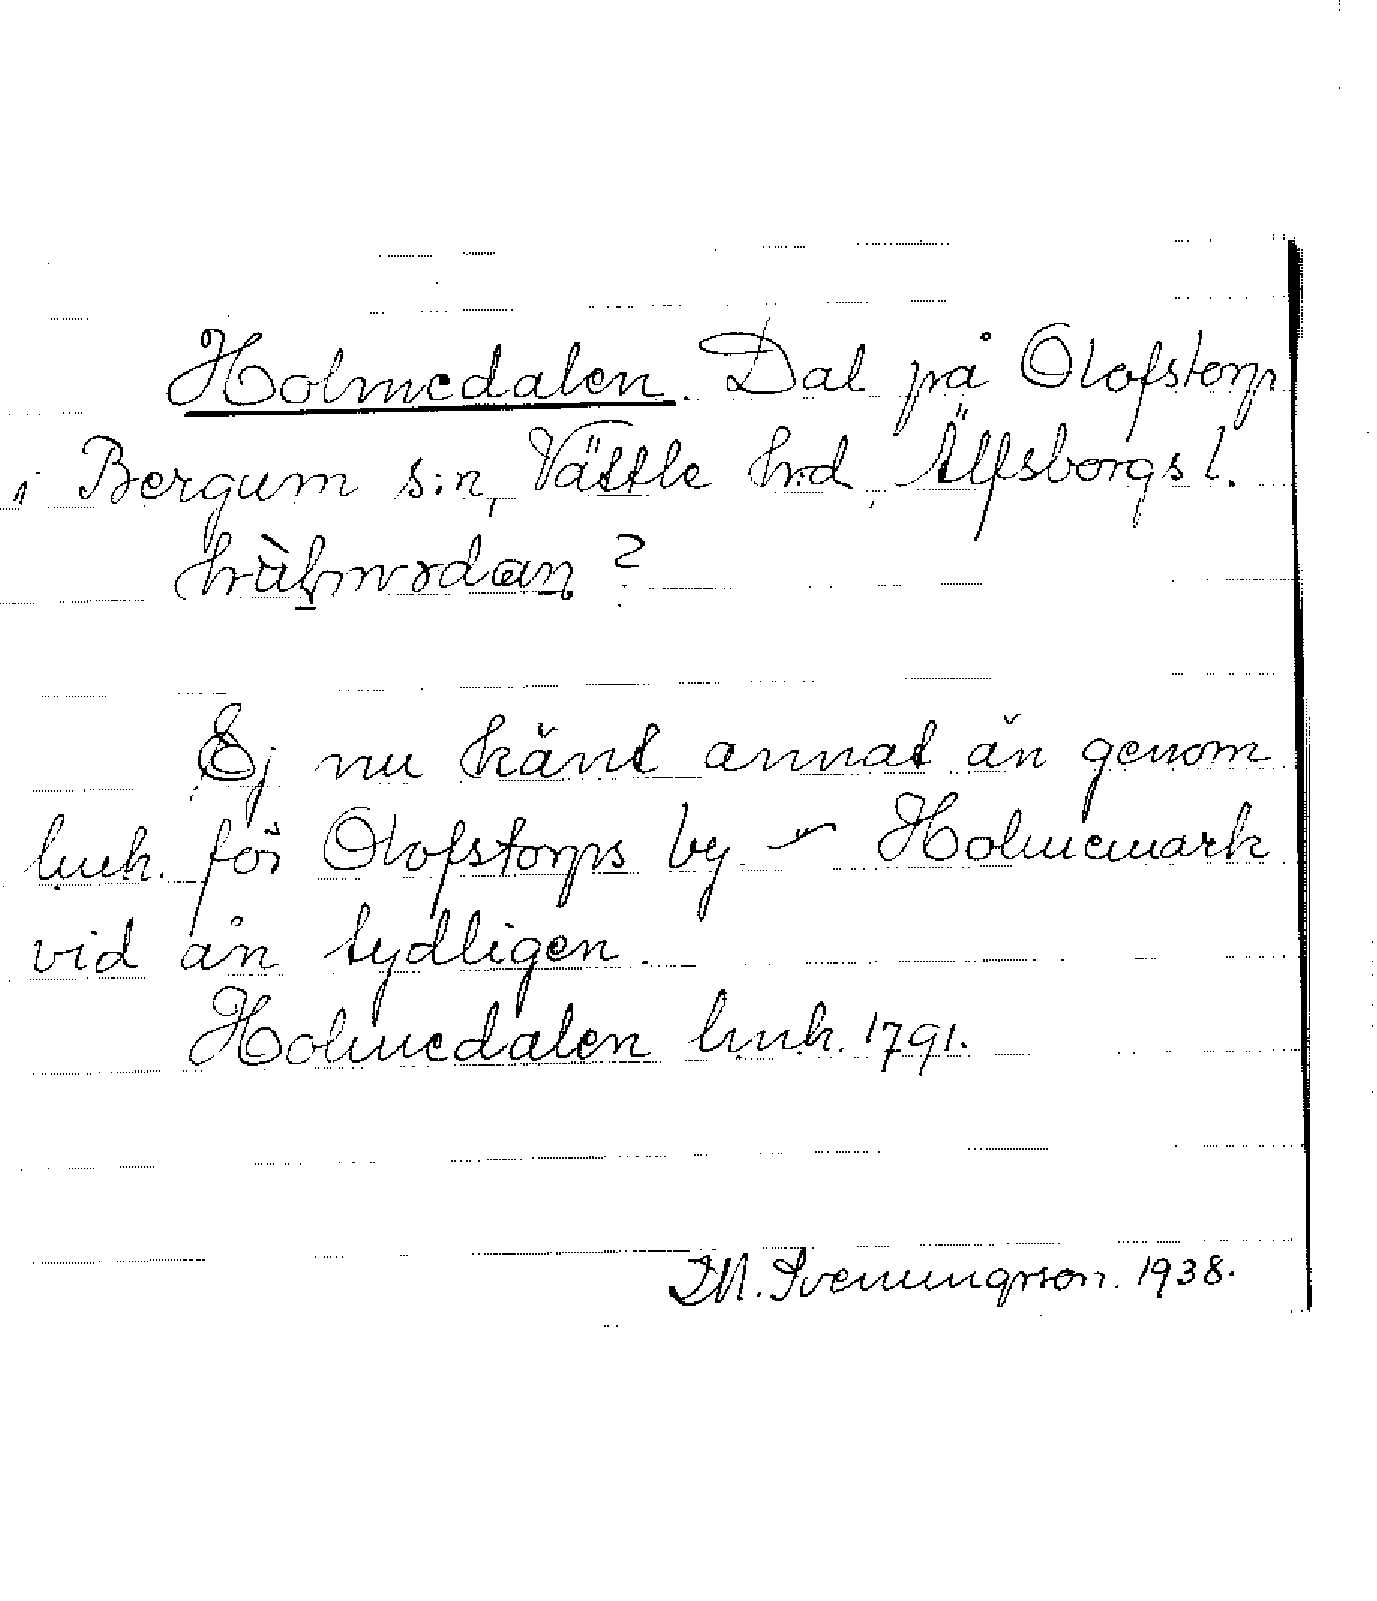 Holmedalen. Dal på Olofstorp
i Bergum s:n, Vättle hrd, Älfsborgs l.
?
Ej nu känt annat än genom
lmh. för Olofstorps by – Holmemark
vid ån tydligen.
Holmedalen lmh. 1791.
Th. Svenningson. 1938.